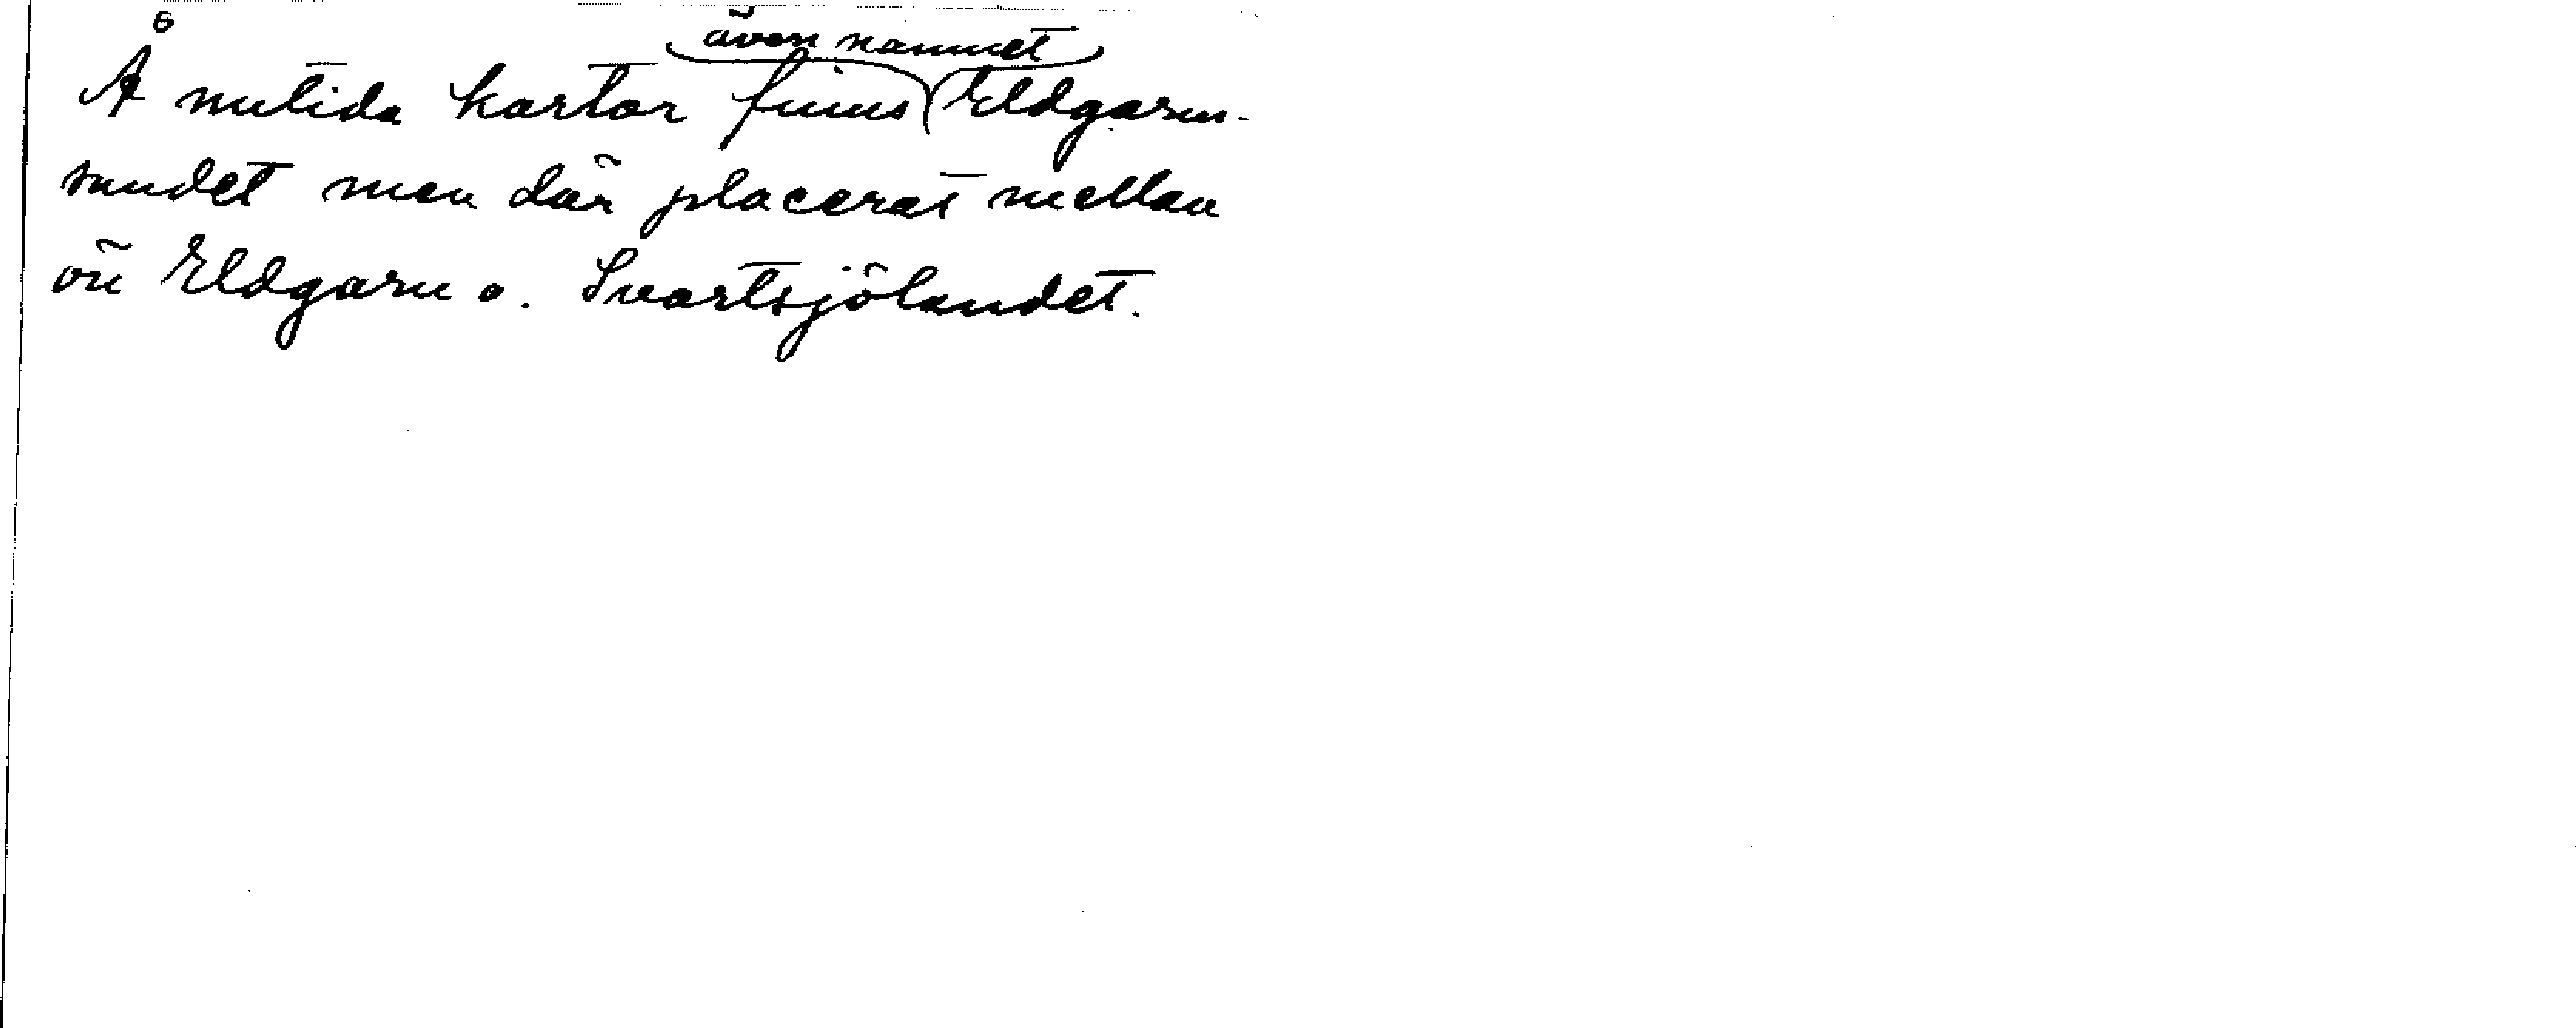 även namnet
Å nutida kartor finns Eldgarns-
sundet men där placerat mellan
ön Eldgarn o. Svartsjölandet.